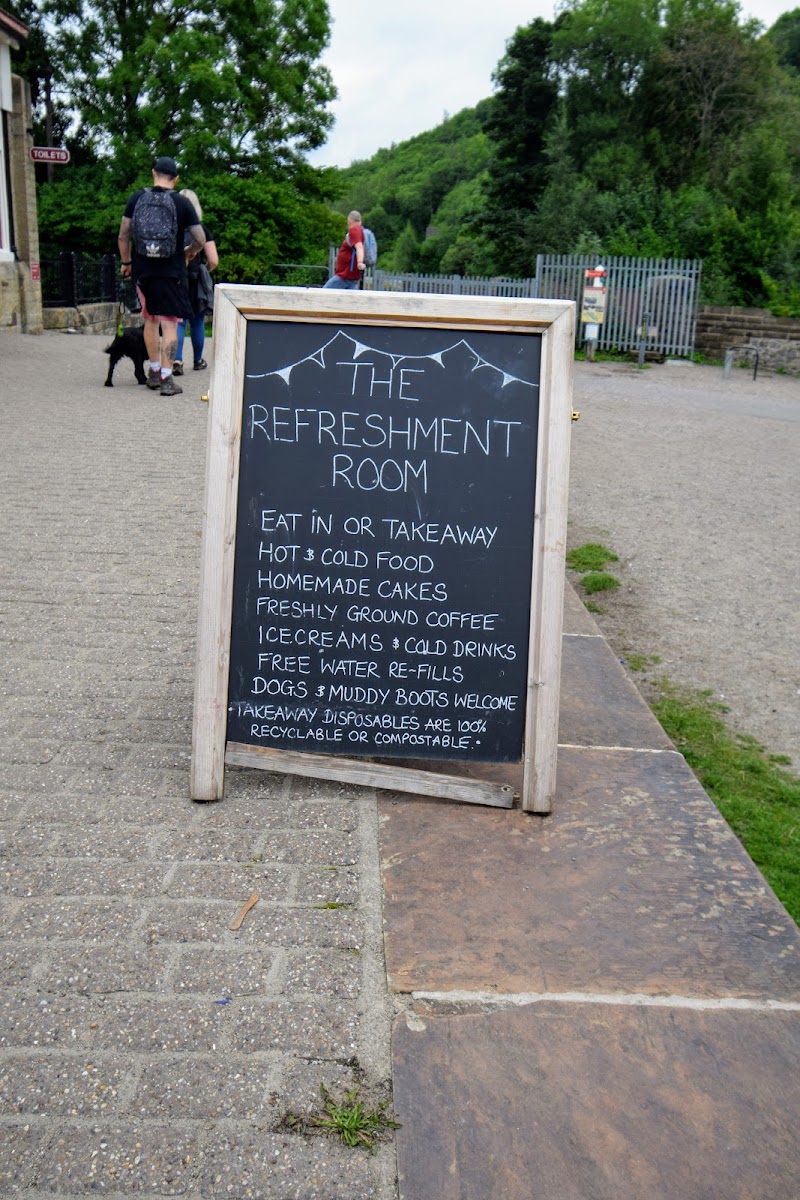 TOILETS
THE
REFRESHMENT
ROOM
EAT IN OR TAKEAWAY
HOT & COLD FOOD
HOMEMADE CAKES
FRESHLY GROUND COFFEE
ICECREAMS & COLD DRINKS
FREE WATER RE-FILLS
DOGS & MUDDY BOOTS WELCOME
•TAKEAWAY DISPOSABLES ARE 100%
RECYCLABLE OR COMPOSTABLE.•